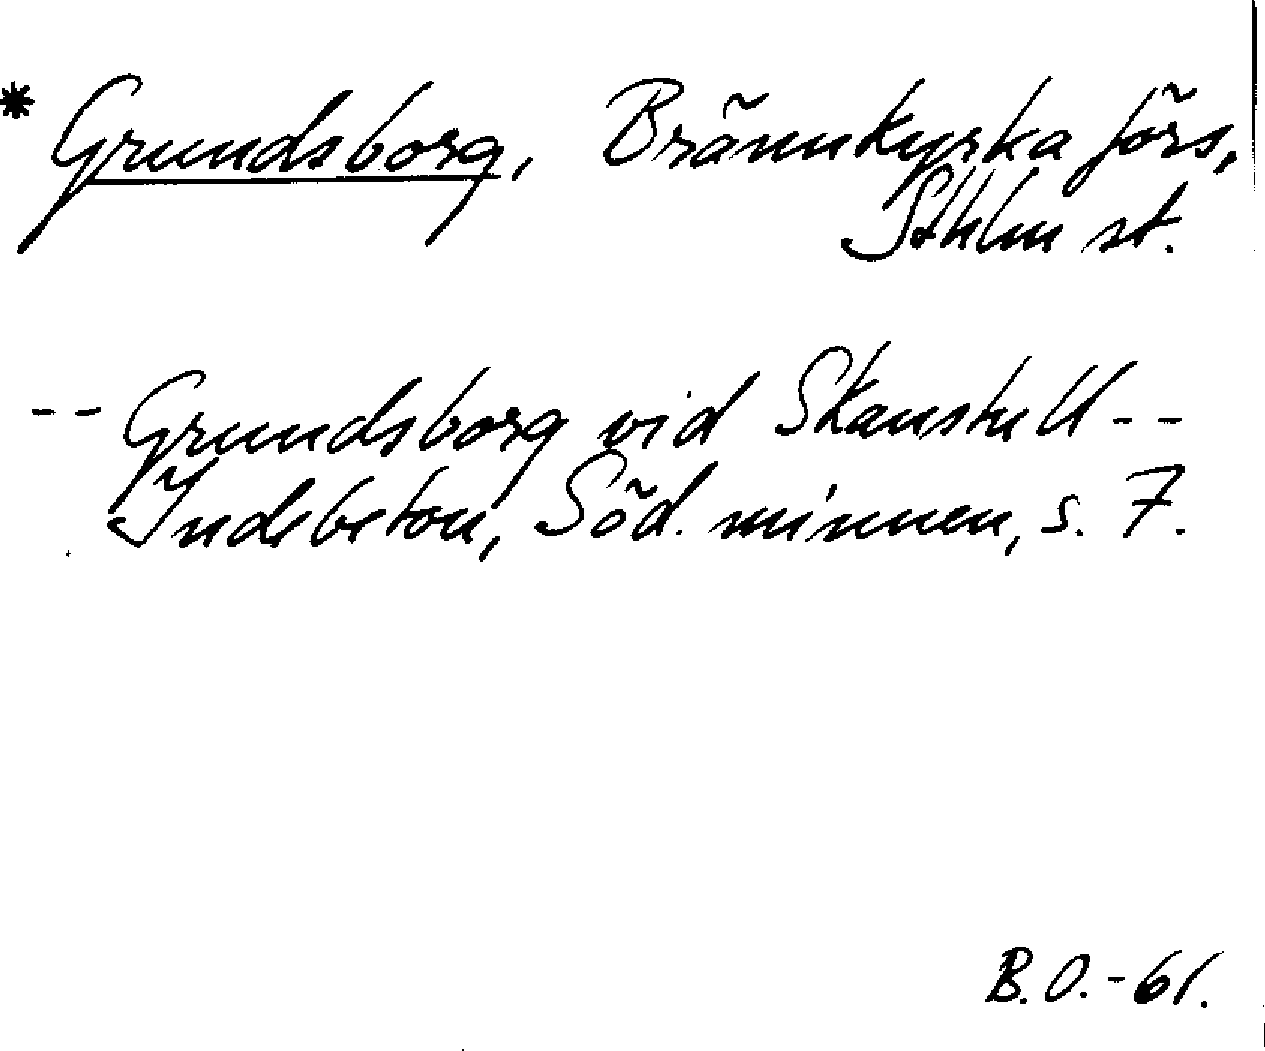 * Grundsborg, Brännkyrka förs,
Sthlm st.
-- Grundsborg vid Skanstull --
Indebetou, Söd. minnen, s. 7.
B.O.-61.